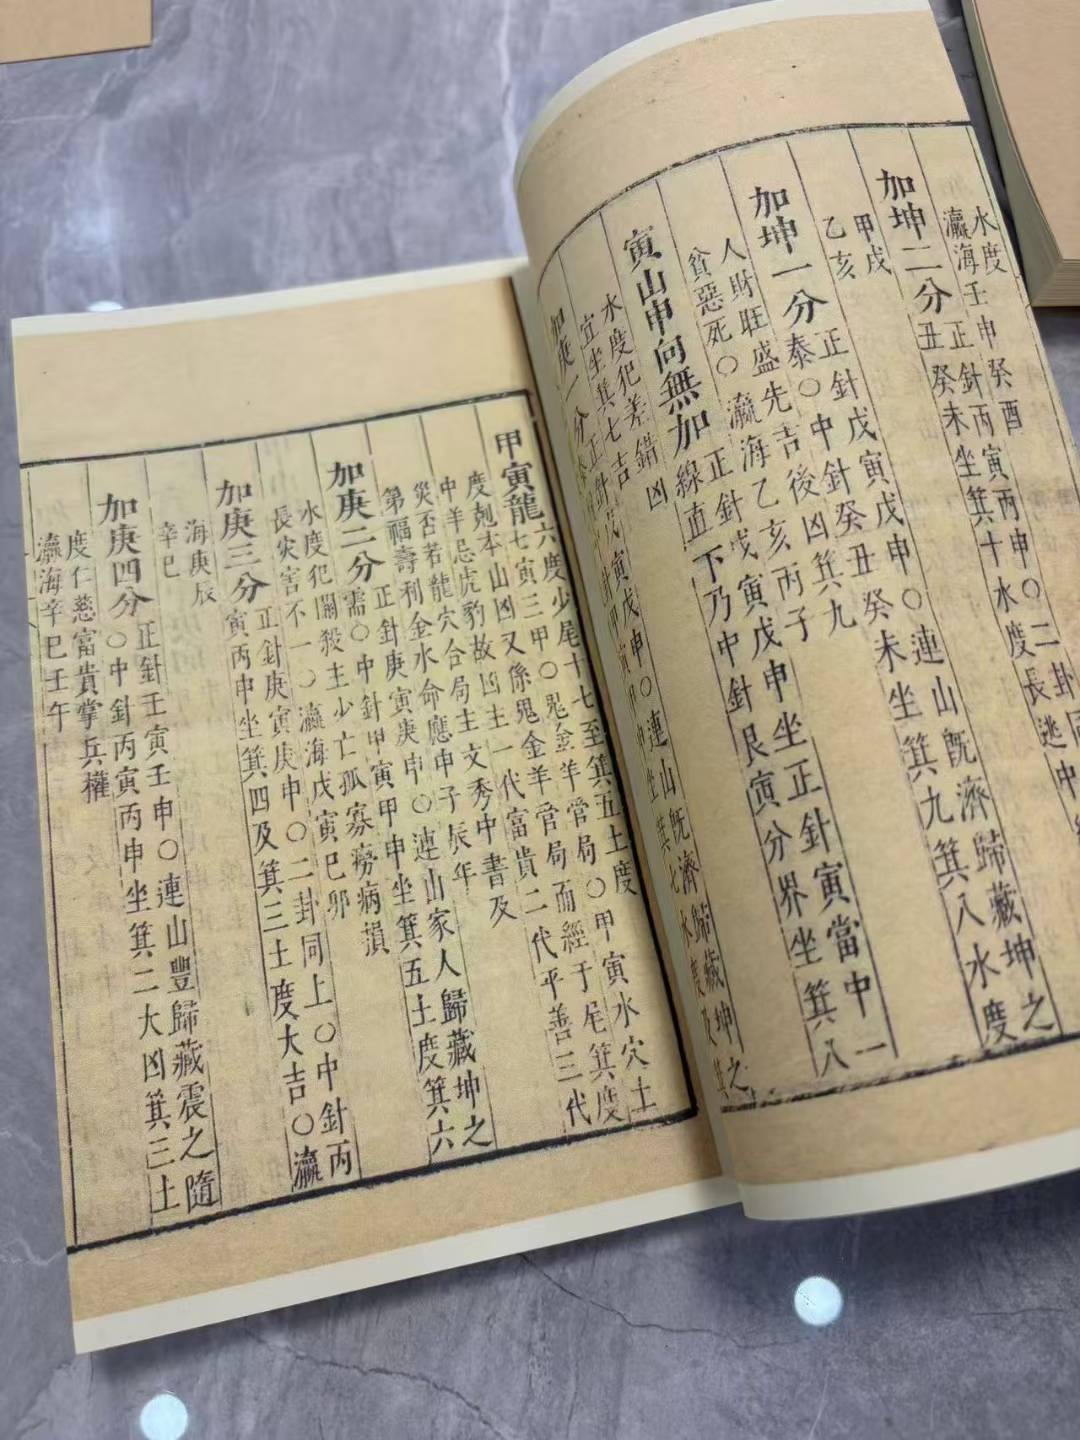 水度
瀛海壬申癸酉
加坤二分
正針丙寅丙申○二卦同
丑癸未坐箕十水度長逃中
甲戌
乙亥
加坤一分
正針戊寅戊申○連山既濟歸藏坤之
泰○中針癸丑癸未坐箕九箕八水度
人財旺盛先吉後凶箕九
貧惡死○瀛海乙亥丙子
寅山申向無加
正針戊寅戊申坐正針寅當中一
線直下乃中針艮寅分界坐箕八
水度犯差錯凶
宜坐箕七吉
加庚一分
正針戊寅戊申○連山既濟歸藏坤之
針甲寅甲申坐箕七水度及箕
甲寅龍
六度少尾十七至箕五土度
七寅三甲○鬼金羊管局○甲寅水穴土
度剋本山凶又係鬼金羊管局而經于尾箕度
中羊忌虎豹故凶主一代富貴二代平善三代
災否若龍穴合局主文秀中書及
第福壽利金水命應申子辰年
加庚二分
正針庚寅庚申○連山家人歸藏坤之
需○中針甲寅甲申坐箕五土度箕六
水度犯關殺主少亡孤寡癆病損
長災害不一○瀛海戊寅巳卯
加庚三分
正針庚寅庚申○二卦同上○中針丙
寅丙申坐箕四及箕三土度大吉○瀛
海庚辰
辛巳
加庚四分
正針壬寅壬申○連山豐歸藏震之隨
○中針丙寅丙申坐箕二大凶箕三土
度仁慈富貴掌兵權
瀛海辛巳壬午